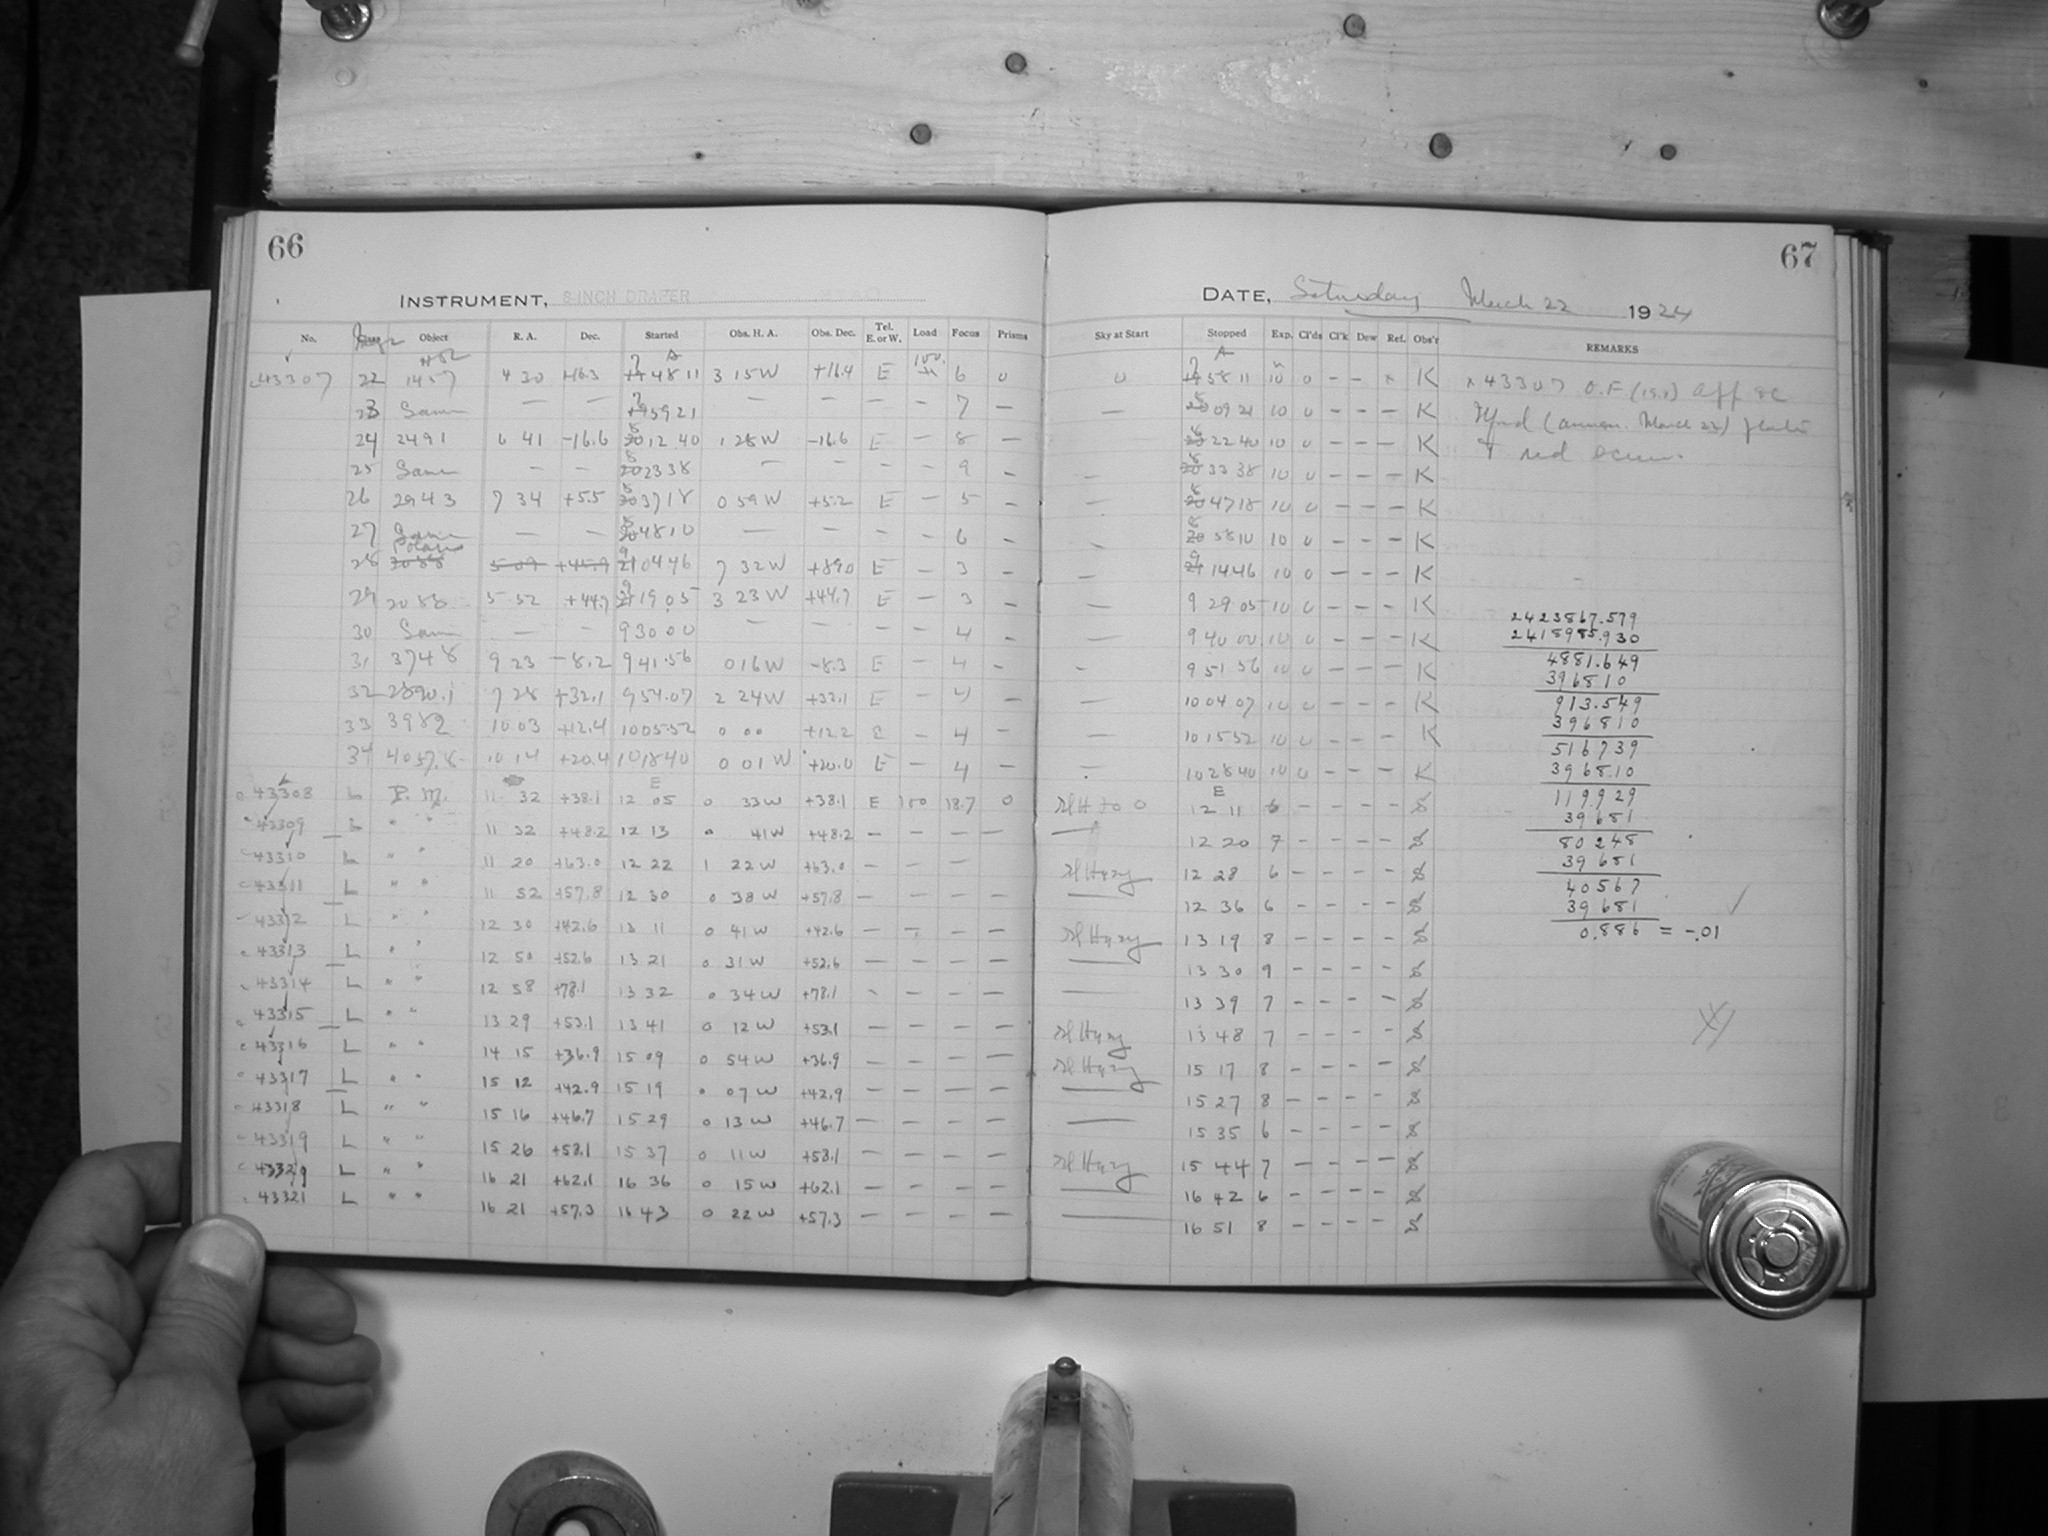 66
INSTRUMENT, 8-INCH DRAPER
No. Object R. A. Dec. Started Obs. H. A. Obs. Dec. Tel. E. or W. Load Focus Prisms
43307 22 1457 4 30 +16.3 7 48 11 3 15 W +16.4 E 6 0
23 Same — — 7 59 21 — — — — 7 —
24 2491 6 41 -16.6 8 12 40 1 28 W -16.6 E — 8
25 Same — — 8 23 38 — — — — 9 —
26 2943 7 34 +5.5 8 37 18 0 59 W +5.2 E — 5 —
27 Same — — 8 48 10 — — — — 6 —
28 Polaris 9 04 46 7 32 W +89.0 E — 3 —
29 2088 5 52 +44.9 9 19 05 3 23 W +44.7 E — 3 —
30 Same — — 9 30 00 — — 4 —
31 3748 9 23 -8.2 9 41.56 0 16 W -8.3 E — 4 —
32 2890.1 7 28 +32.1 9 54.07 2 24 W +32.1 E — 4 —
33 3982 10 03 +12.4 10 05.52 0 00 +12.2 E — 4 —
34 4057.8 10 14 +20.4 10 18 40 0 01 W +20.0 E — 4 —
43308 L P. M. 11 32 +38.1 12 05 0 33 W +38.1 E 100 18.7 0
43309 L " " 11 32 +48.2 12 13 0 41 W +48.2 — — — —
43310 L " " 11 20 +63.0 12 22 1 22 W +63.0 — — —
43311 L " " 11 52 +57.8 12 30 0 38 W +57.8 — — — —
43312 L " " 12 30 +42.6 13 11 0 41 W +42.6 — — — —
43313 L " " 12 50 +52.6 13 21 0 31 W +52.6 — — — —
43314 L " " 12 58 +78.1 13 32 0 34 W +78.1 — — — —
43315 L " " 13 29 +53.1 13 41 0 12 W +53.1 — — — —
43316 L " " 14 15 +36.9 15 09 0 54 W +36.9 — — — —
43317 L " " 15 12 +42.9 15 19 0 07 W +42.9 — — — —
43318 L " " 15 16 +46.7 15 29 0 13 W +46.7 — — — —
43319 L " " 15 26 +58.1 15 37 0 11 W +58.1 — — — —
L " " 16 21 +62.1 16 36 0 15 W +62.1 — — — —
43321 L " " 16 21 +57.3 16 43 0 22 W +57.3 — — — —
67
DATE, Saturday March 22 1924
Sky at Start Stopped Exp. Cl'ds Cl'k Dew Ref. Obs'r REMARKS
0 7 58 11 10 0 — — x K
— 8 09 21 10 0 — — — K
8 22 40 10 0 — — — K
— 8 33 38 10 0 — — — K
— 8 47 18 10 0 — — — K
— 8 58 10 10 0 — — — K
— 9 14 46 10 0 — — — K
— 9 29 05 10 0 — — — K
— 9 40 00 10 0 — — — K
— 9 51 56 10 0 — — — K
— 10 04 07 10 0 — — — K
— 10 15 52 10 0 — — — K
— 10 28 40 10 0 — — — K
Sl H to 0 12 11 6 — — — —
— 12 20 7 — — — —
Sl Hazy 12 28 6 — — — —
— 12 36 6 — — — —
Sl Hazy 13 19 8 — — — —
— 13 30 9 — — — —
— 13 39 7 — — — —
Sl Hazy 13 48 7 — — — —
Sl Hazy 15 17 8 — — — —
— 15 27 8 — — — —
— 15 35 6 — — — —
Sl Hazy 15 44 7 — — — —
— 16 42 6 — — — —
— 16 51 8 — — — —
x 43307 O.F
(March 22) plates
2423867.579
2418985.930
4881.649
396810
913.549
396810
516739
396810
119.929
39681
80248
39681
40567
39681
0.886 = -.01